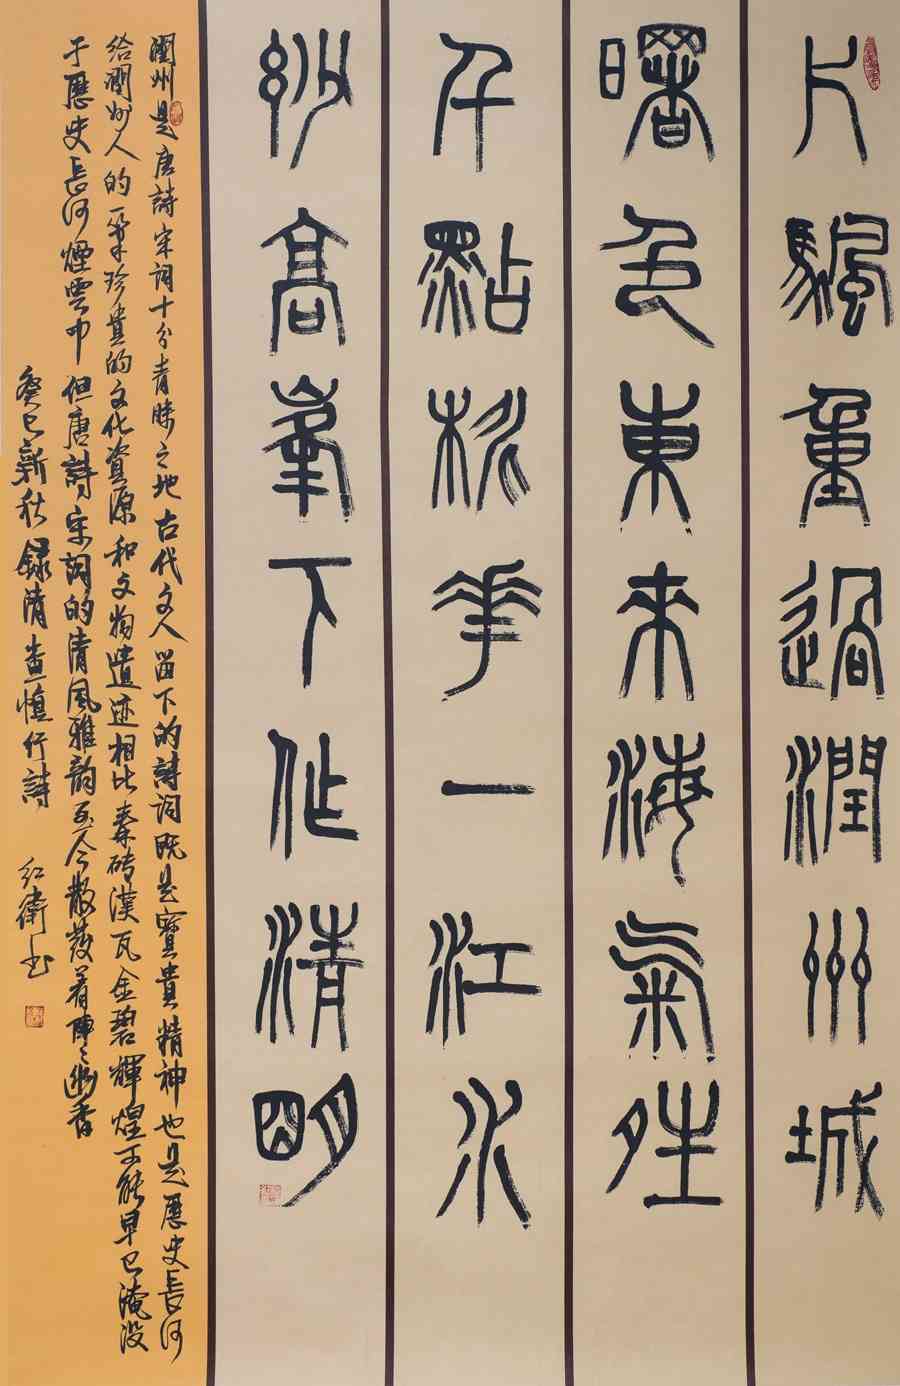 片颿重過潤州城
曙色東來海氣夝
千點桃花一江水
玅高峯下作清明
潤州是唐詩宋詞十分青睞之地古代文人留下的詩詞既是寶貴精神也是歷史長河
給潤州人的一筆珍貴的文化資源和文物遺迹相比秦砖漢瓦金碧輝煌可能早已淹没
于歷史長河煙雲中但唐詩宋詞的清風雅韵至今散發着陣陣幽香
癸巳新秋錄清查慎行詩 紅衛书